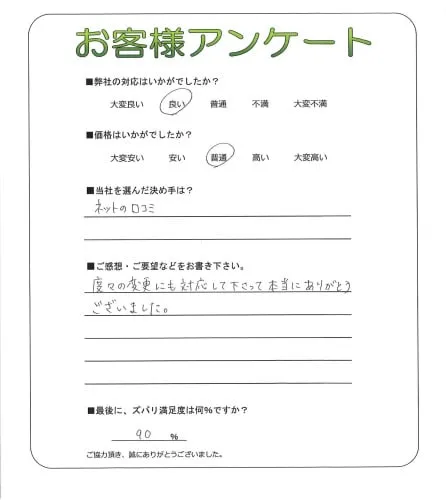 お客様アンケート
■弊社の対応はいかがでしたか？
大変良い 良い 普通 不満 大変不満
■価格はいかがでしたか？
大変安い 安い 普通 高い 大変高い
■当社を選んだ決め手は？
ネットの口コミ
■ご感想・ご要望などをお書き下さい。
度々の変更にも対応して下さって本当にありがとう
ございました。
■最後に、ズバリ満足度は何%ですか？
90 %
ご協力頂き、誠にありがとうございました。